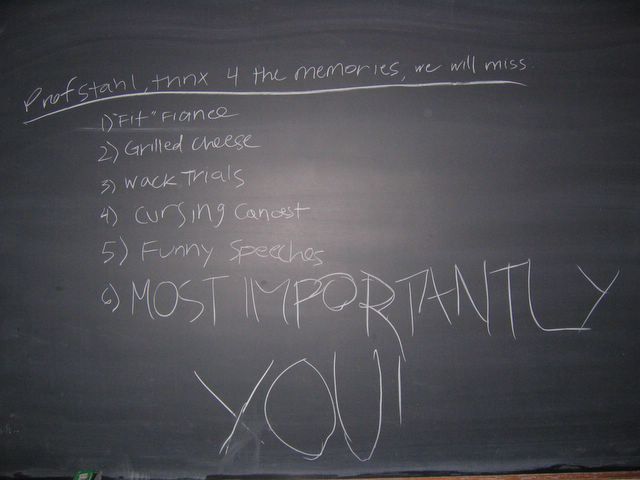 Prof stahl, thnx 4 the memories, we will miss
1) "Fit" Fiance
2) Grilled cheese
3) Wack Trials
4) Cursing Canost
5) Funny Speeches
6) MOST IMPORTANTLY
YOU!